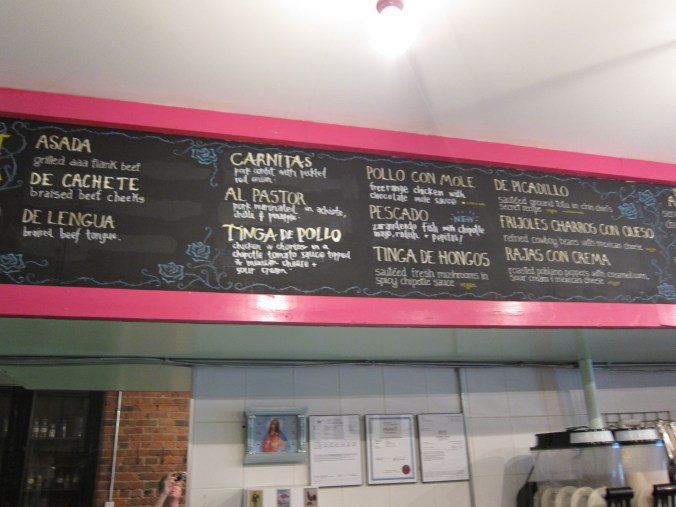 ASADA
grilled aaa flank beef
DE CACHETE
braised beef cheeks
DE LENGUA
braised beef tongue.
CARNITAS
pork confit with pickled
red onion
AL PASTOR
pork marinated in achiote,
chile & pineapple
TINGA DE POLLO
chicken & chorizo in a
chipotle tomato sauce topped
w mexican cheese +
sour cream
POLLO CON MOLE
free range chicken with
chocolate mole sauce
PESCADO NEW!
zarandeado fish with chipotle
mayo, radish +
TINGA DE HONGOS
sautéed fresh mushrooms in
spicy chipotle sauce vegan
DE PICADILLO
sautéed ground
secret recipe
FRIJOLES CHARROS CON QUESO
refried cowboy beans with mexican cheese
RAJAS CON CREMA
roasted poblano peppers with creamed corn,
sour cream & mexican cheese